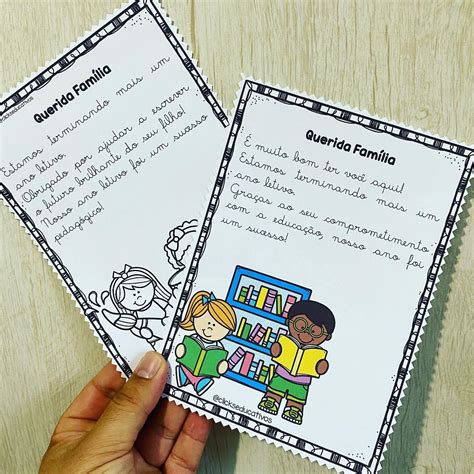 Querida Família
Estamos terminando mais um
ano letivo.
Obrigado por ajudar a escrever
o futuro brilhante do seu filho!
Nosso ano letivo foi um sucesso
pedagógico!
Querida Família
É muito bom ter você aqui!
Estamos terminando mais um
ano letivo.
Graças ao seu comprometimento
com a educação, nosso ano foi
um sucesso!
@clickseducativos